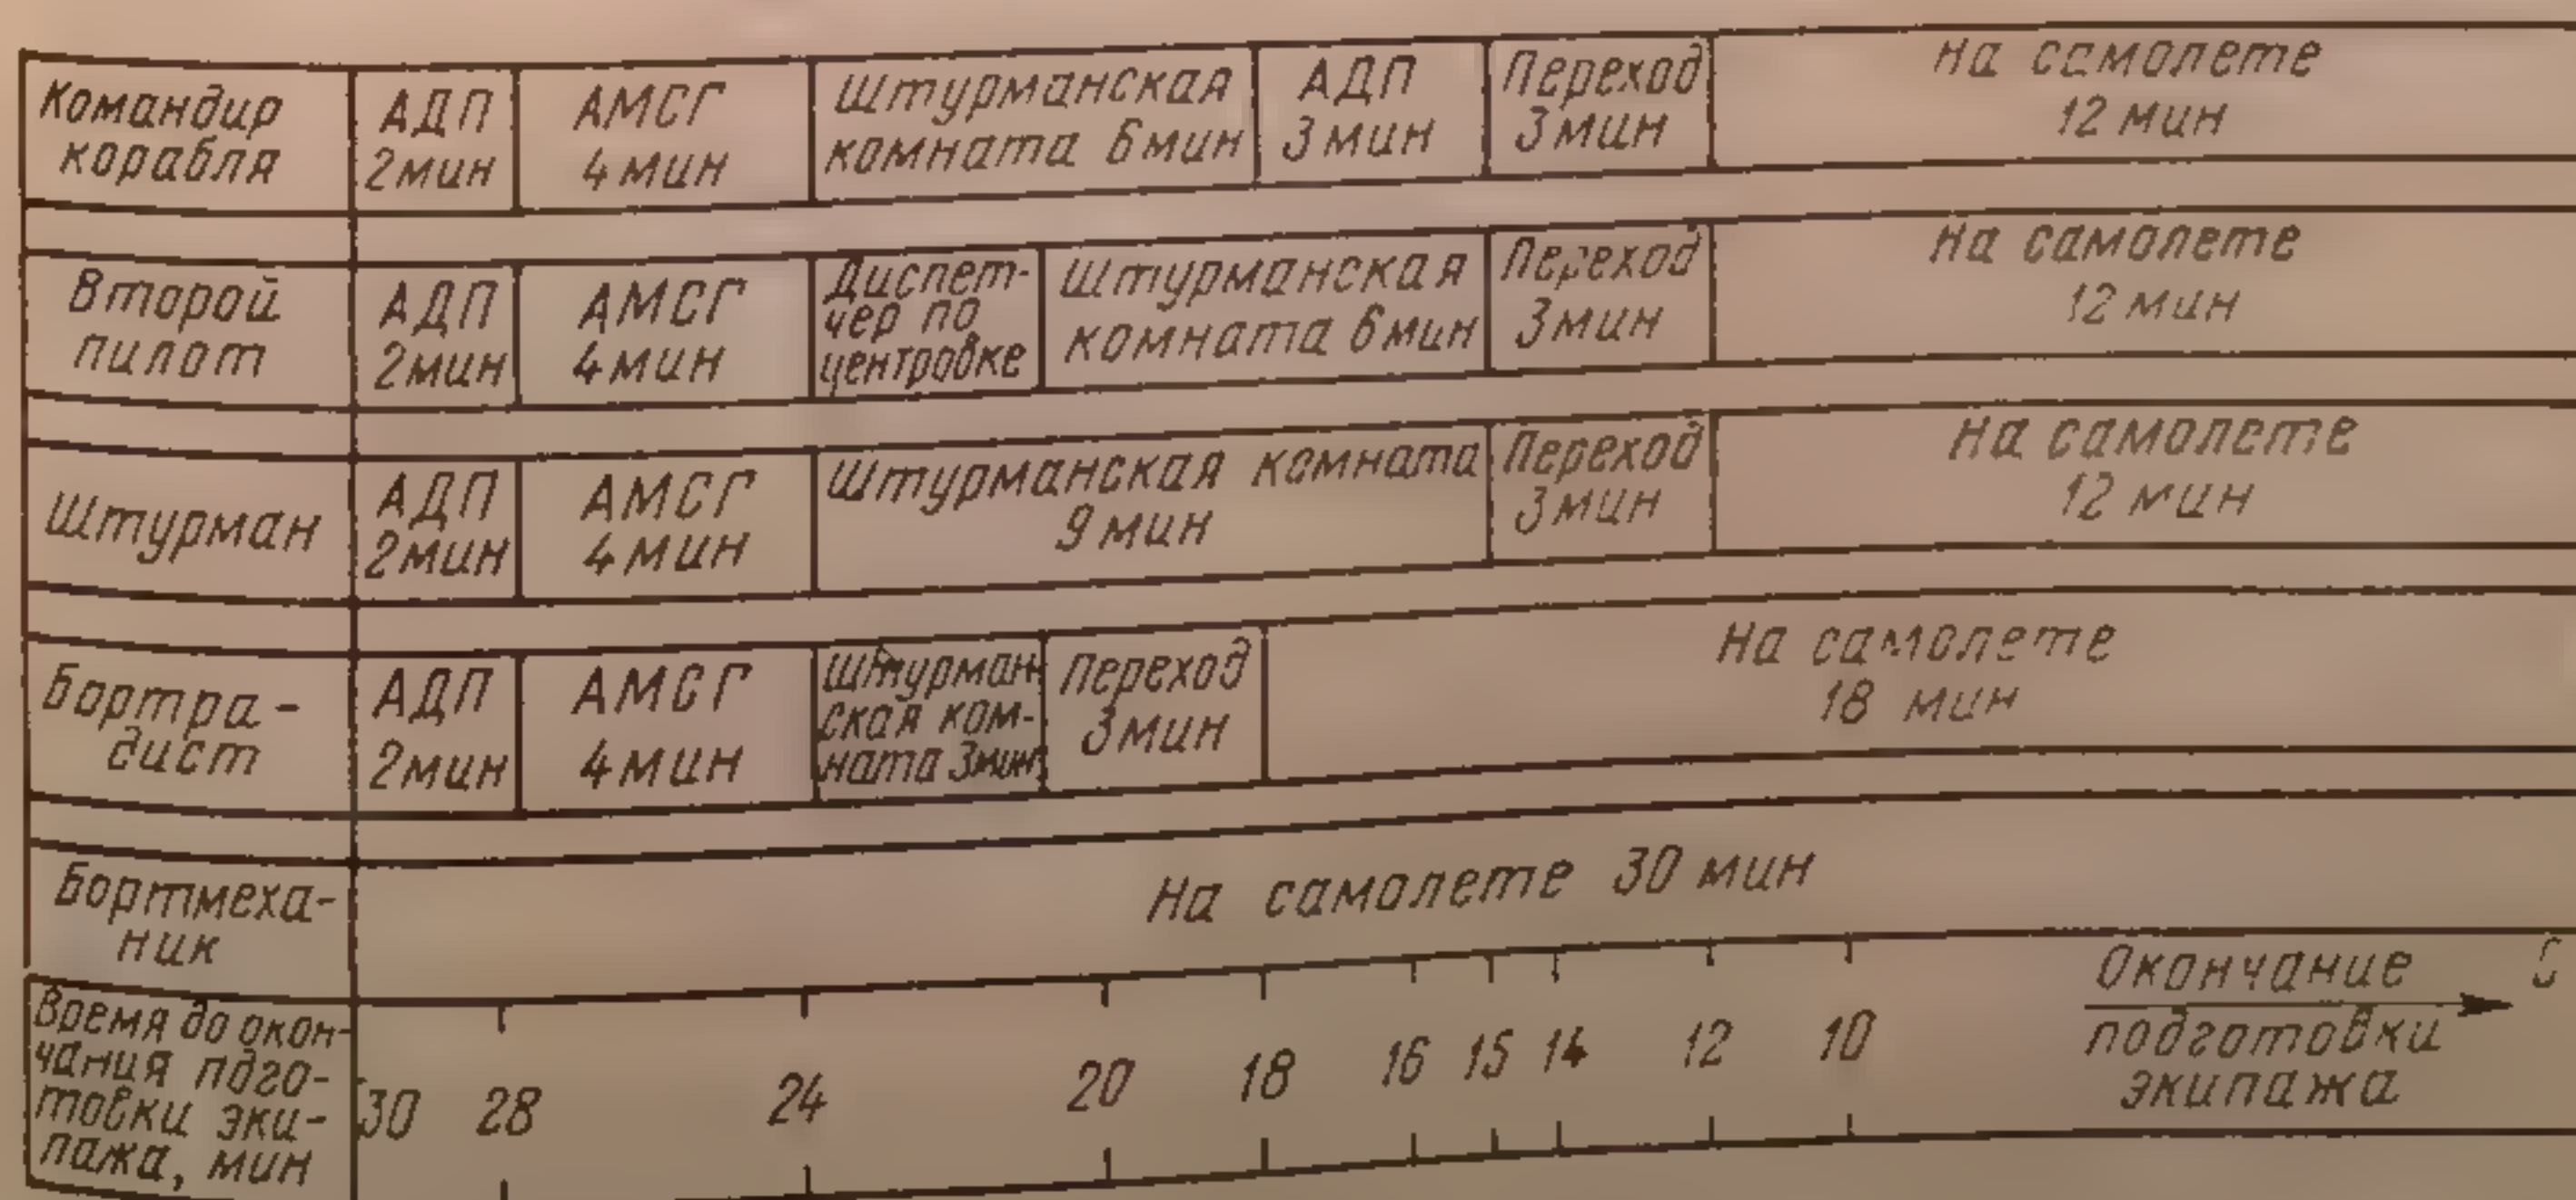 Командир
корабля
АДП
2мин
АМСГ
4 мин
Штурманская
комната 6мин
АДП
3 мин
Переход
3мин
На самолете
12 мин
Второй
пилот
АДП
2мин
АМСГ
4мин
Диспет-
чер по
центровке
Штурманская
комната 6мин
Переход
3мин
На самолете
12 мин
Штурман
АДП
2мин
АМСГ
4 мин
Штурманская комната
9 мин
Переход
3мин
На самолете
12 мин
Бортра-
дист
АДП
2мин
АМСГ
4мин
Штурман-
ская ком-
ната 3мин
Переход
3мин
На самолете
18 мин
Бортмеха-
ник
На самолете 30 мин
Время до окон-
чания пдго-
товки эки-
пажа, мин
30 28 24 20 18 16 15 14 12 10
Окончание
подготовки
экипажа